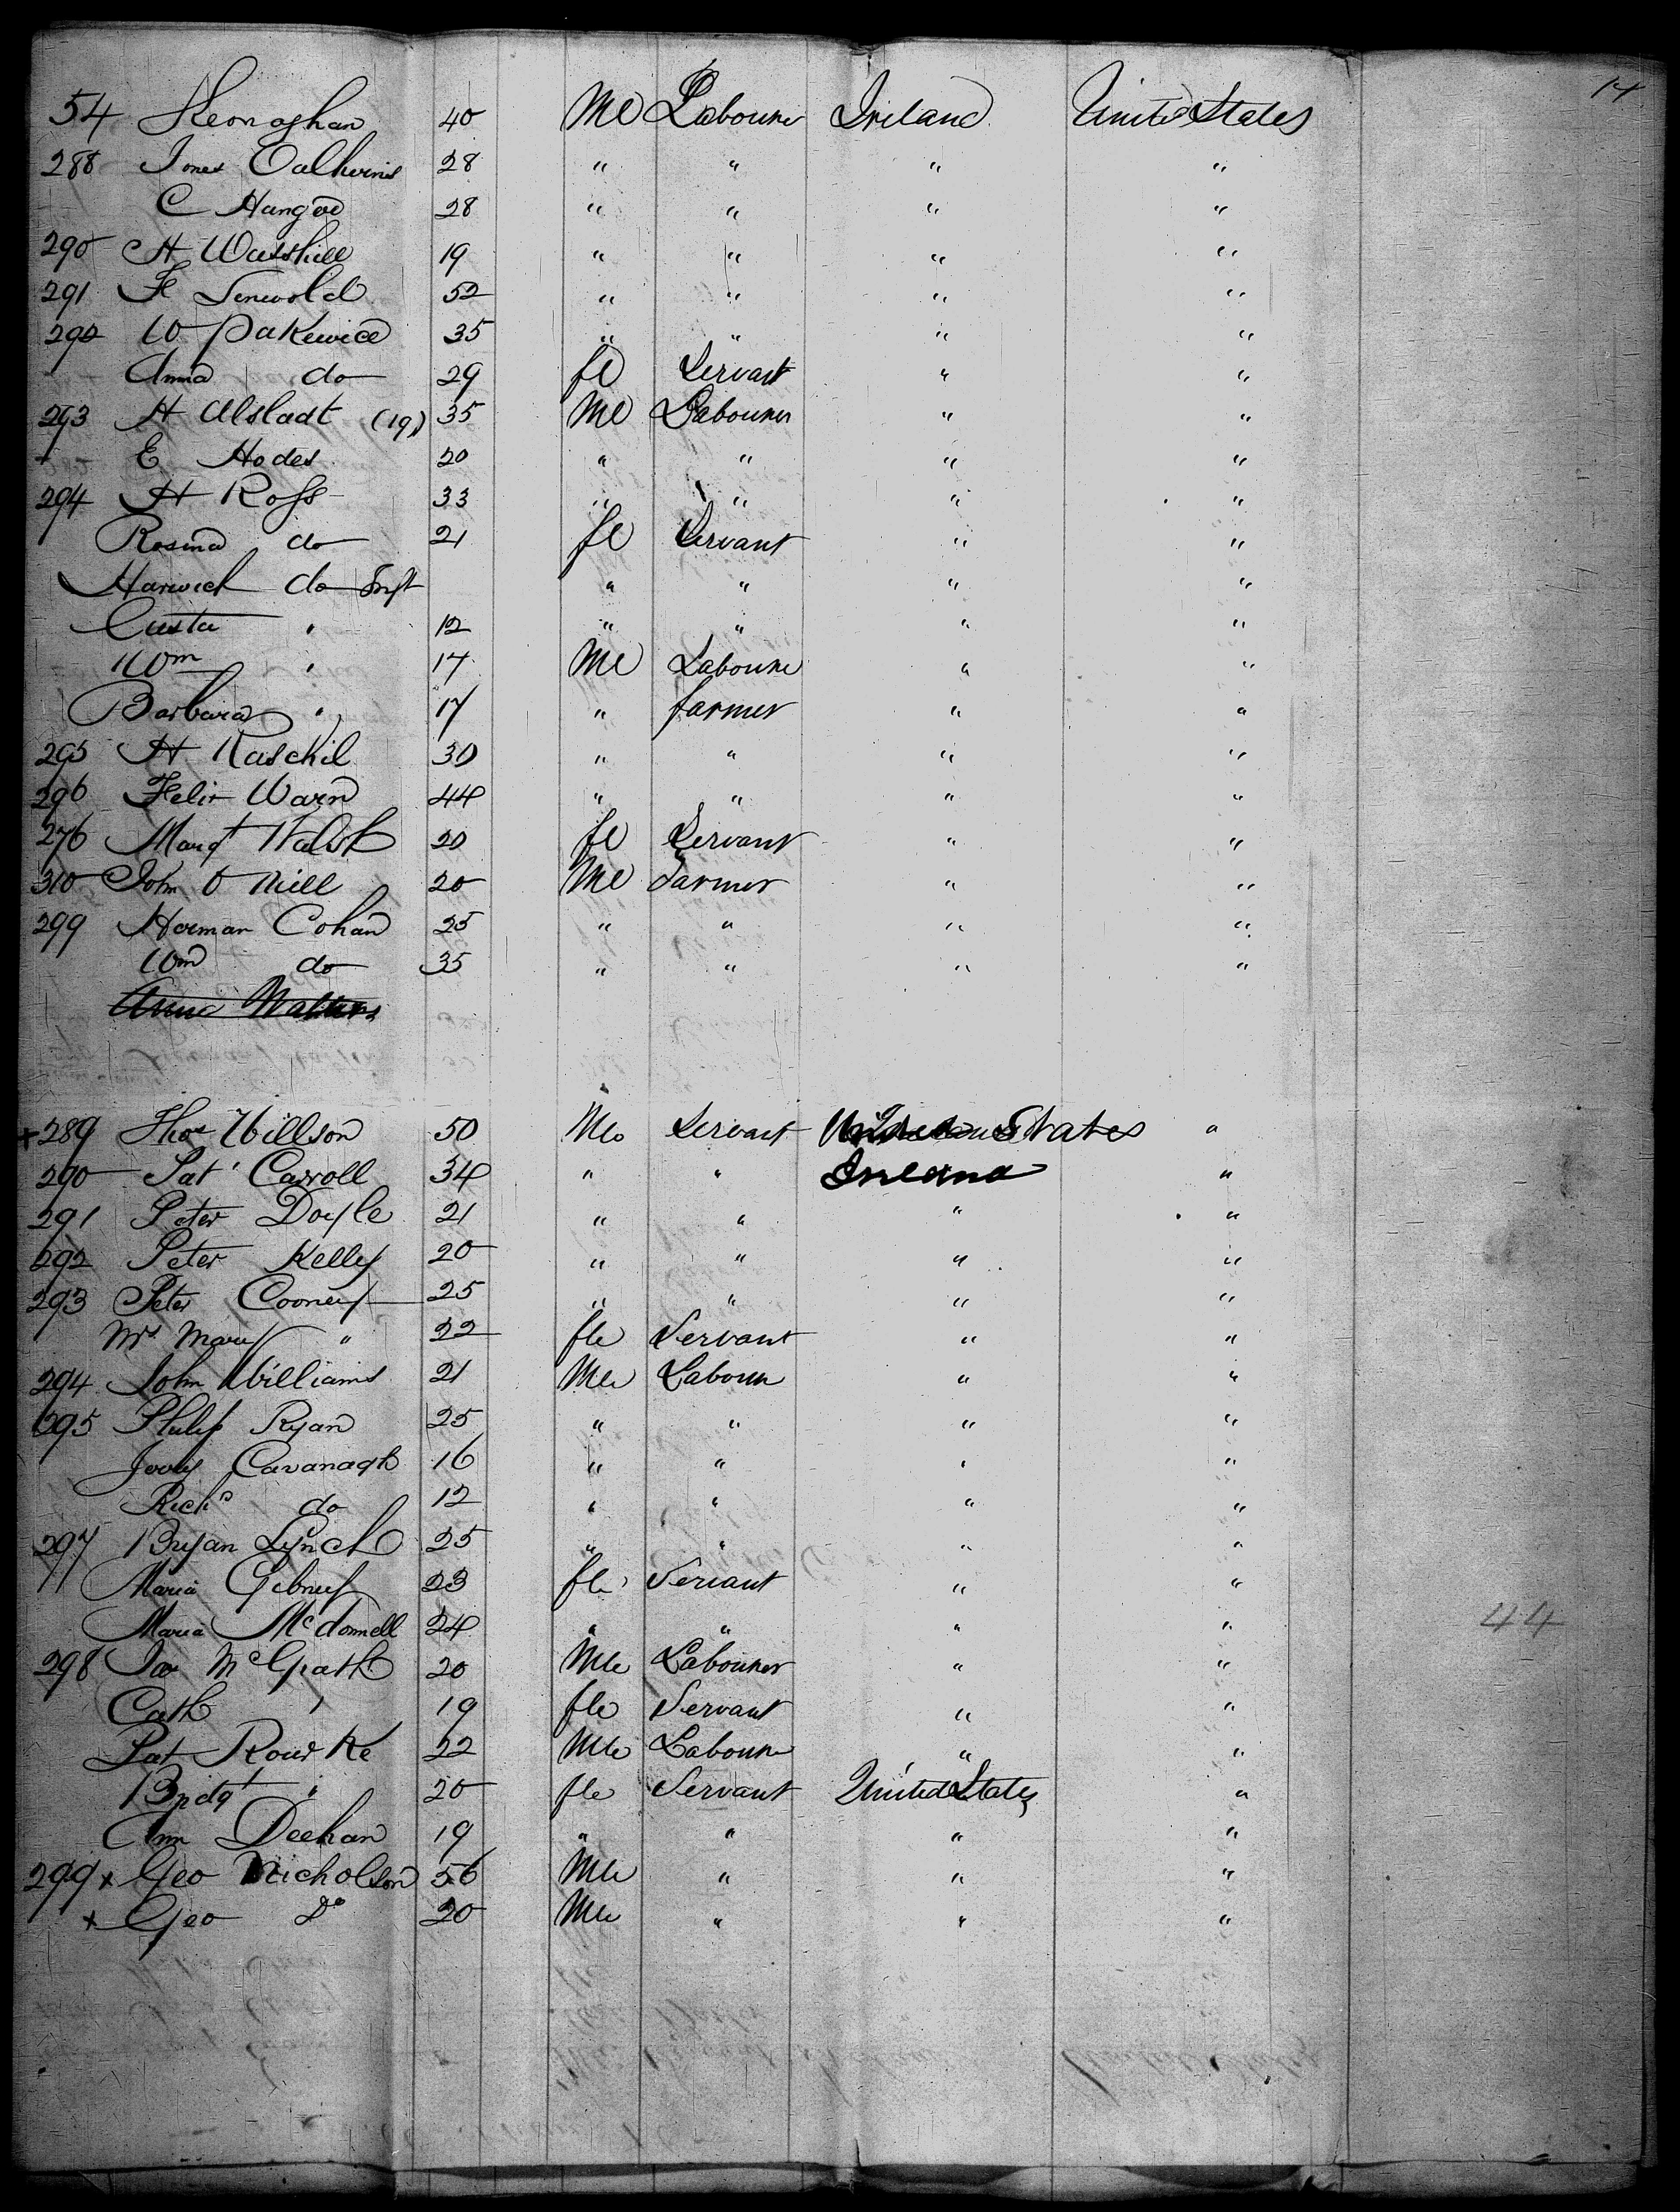 14
54 Heonaghan 40 Me Labourer Ireland United States
288 Jones 28 " " " "
C Hangod 28 " " " "
290 H 19 " " " "
291 F 52 " " " "
292 W Pakewice 35 " " " "
Anna do 29 fe Servant " "
293 H Alsladt (19) 35 Me Labourer " "
E Hodes 20 " " " "
294 H Ross 33 " " " "
Rosina do 21 fe Servant " "
Harwich do Inft " " " "
Custa " 12 " " " "
Wm " 17 Me Laboure " "
Barbara " 17 " farmer " "
295 H Raschil 30 " " " "
296 Felix Warn 44 " " " "
276 Margt Walsh 20 fe Servant " "
310 John O Niell 20 Me Farmer " "
299 Herman Cohan 25 " " " "
Wm do 35 " " " "
Anna Walters
x 289 Thos Willson 50 Me Servant States "
290 Pat Carroll 34 " " Ireland "
291 Peter Doyle 21 " " " "
292 Peter Kelley 20 " " " "
293 Peter Cooney 25 " " " "
Mrs Mary " 22 fle Servant " "
294 John Williams 21 Mle Labour " "
295 Philip Ryan 25 " " " "
Cavanagh 16 " " " "
Richd do 12 " " " "
297 Bryan Lynch 25 " " " "
Maria Gibney 23 fle Servant " "
Maria McDonnell 24 " " " "
44
298 Jas McGrath 20 Mle Labourer " "
Cath " 19 fle Servant " "
Pat Rourke 22 Mle Laboure " "
Bridgt " 20 fle Servant United States "
Ann Deehan 19 " " " "
299 x Geo Nicholson 56 Mle " " "
x Geo Do 20 Mle " " "